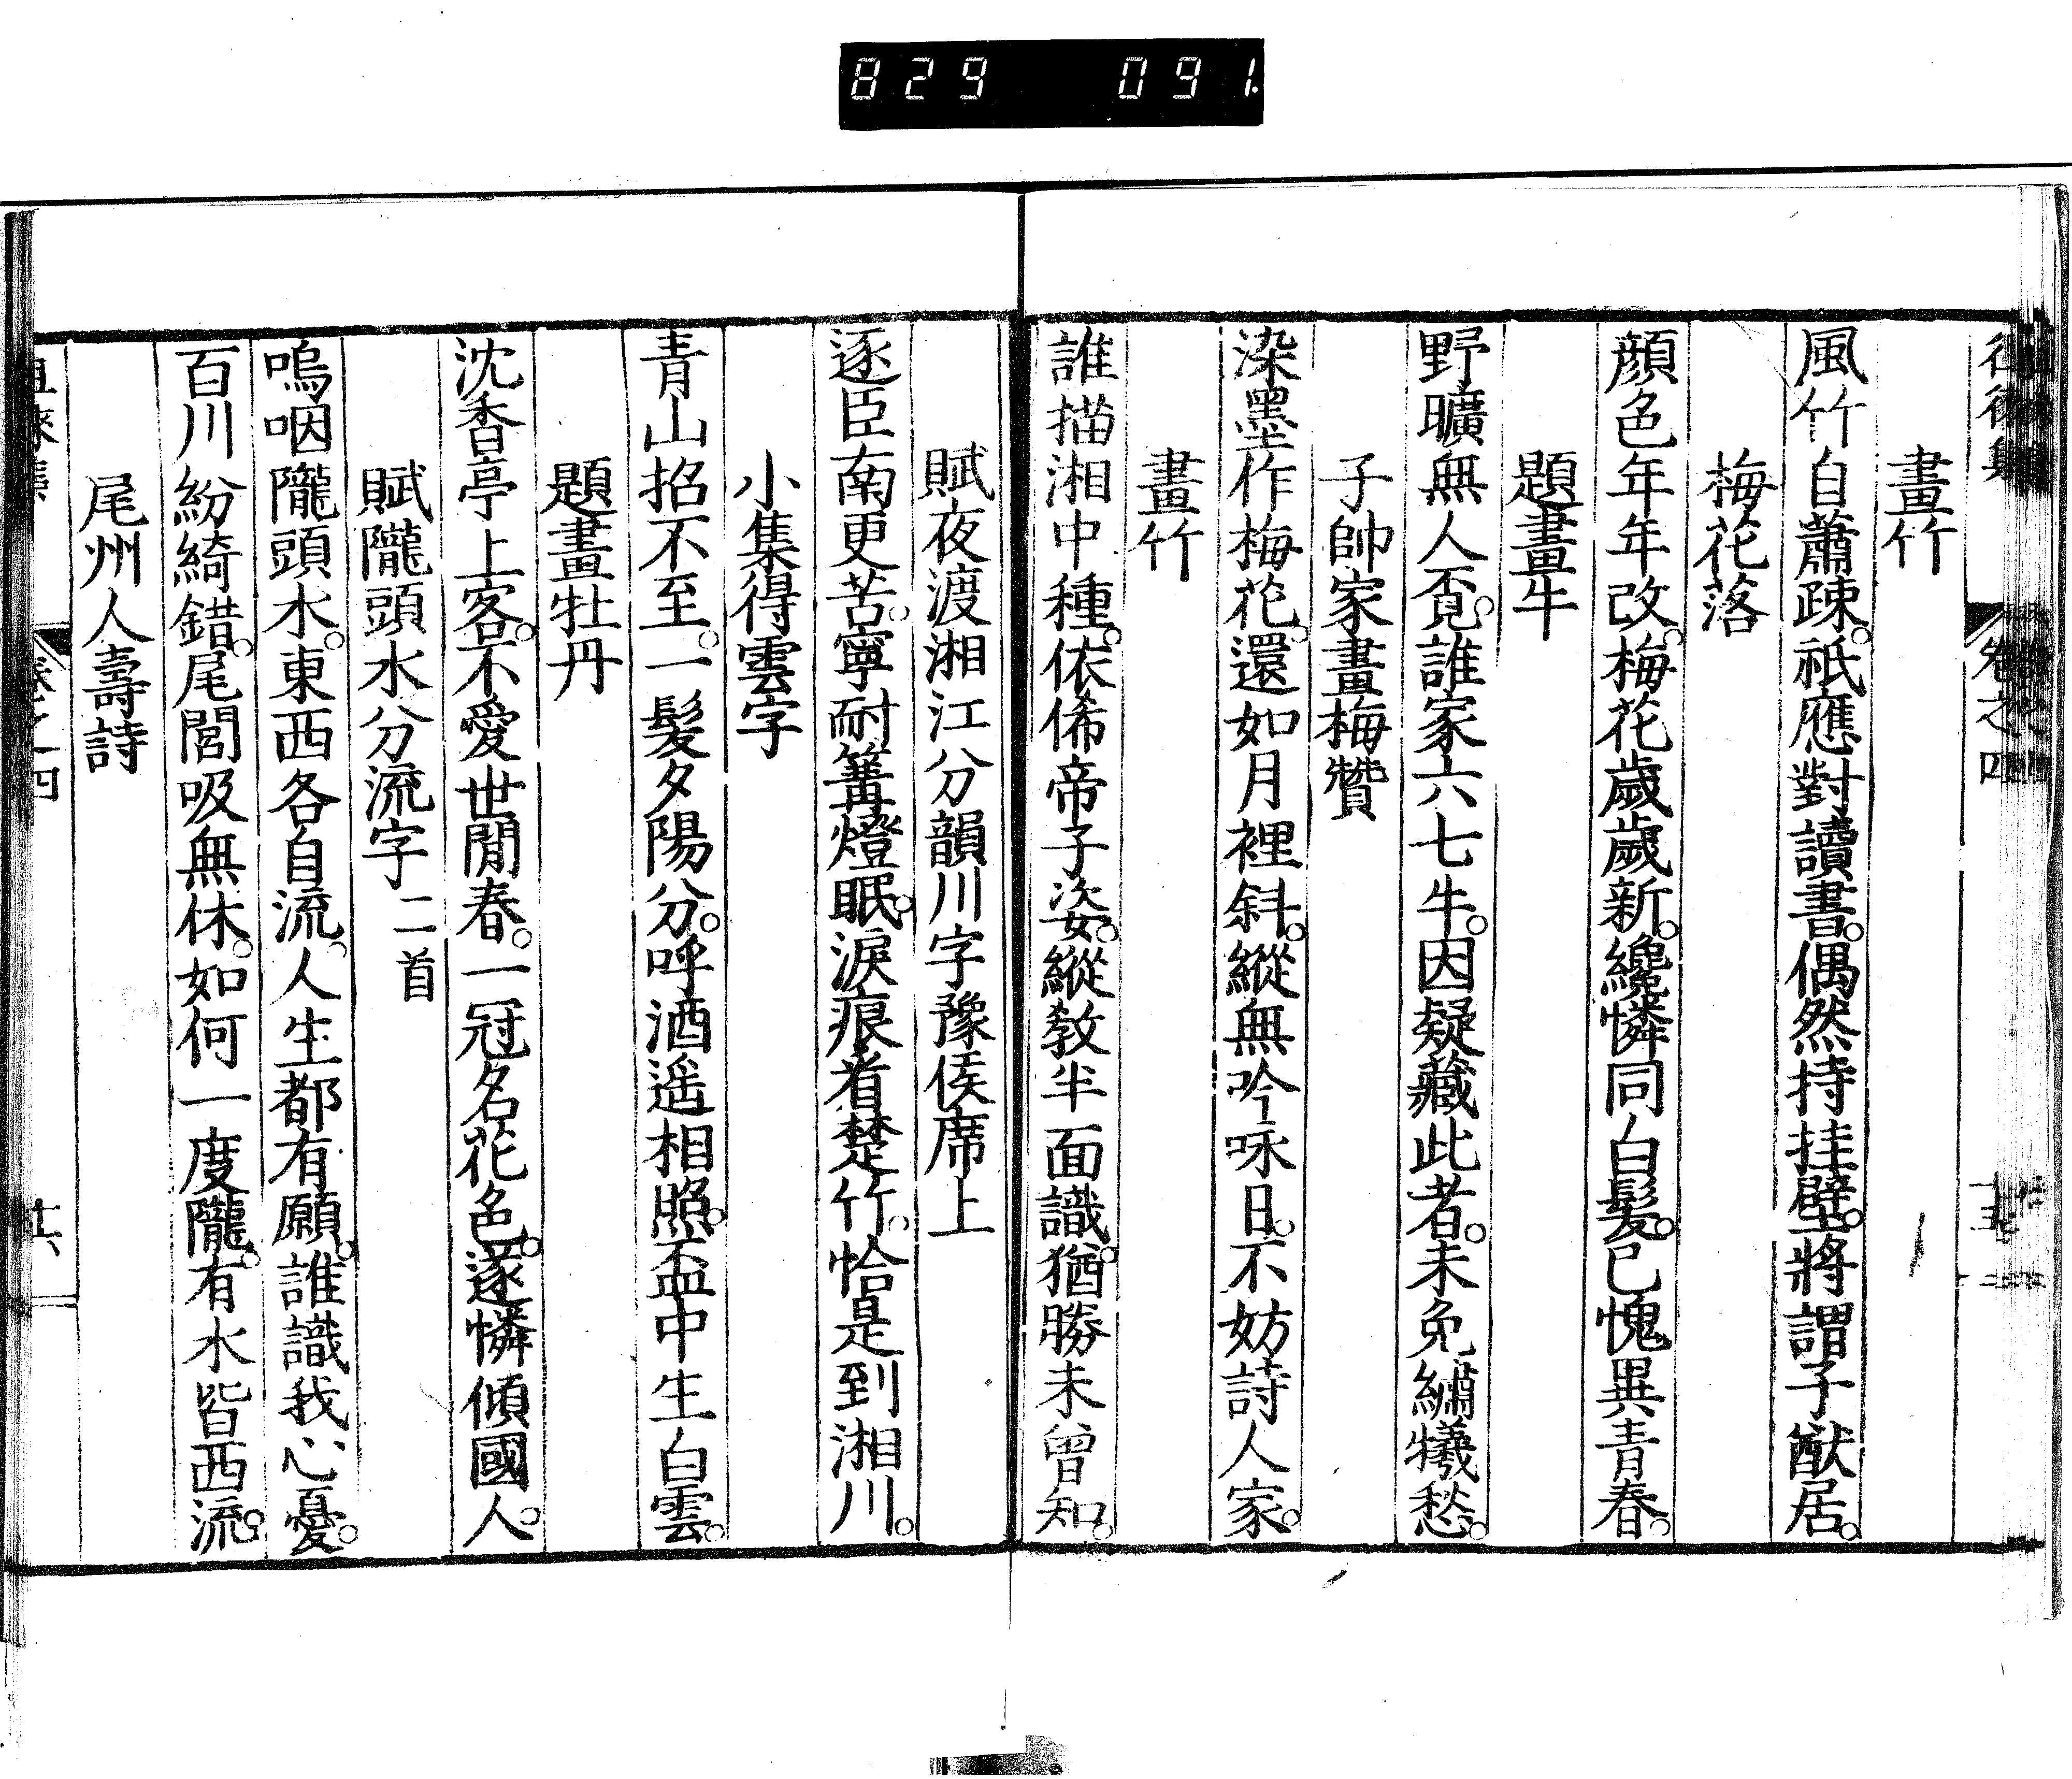 829 091
畫竹
風竹自蕭疎。祇應對讀書。偶然持挂壁。將謂子猷居。
梅花落
顏色年年改。梅花歲歲新。纔憐同白髮。已愧異青春。
題畫牛
野曠無人覔。誰家六七牛。因疑藏此者。未免繡犧愁。
子帥家畫梅贊
染墨作梅花。還如月裡斜。縱無吟咏日。不妨詩人家。
畫竹
誰描湘中種。依俙帝子姿。縱教半面識。猶勝未曾知。
賦夜渡湘江分韻川字豫侯席上
逐臣南更苦。寧耐篝燈眠。淚痕着楚竹。恰是到湘川。
小集得雲字
青山招不至。一髮夕陽分。呼酒遥相照。盃中生白雲。
題畫牡丹
沈香亭上客。不愛世間春。一冠名花色。遂憐傾國人。
賦隴頭水分流字二首
嗚咽隴頭水。東西各自流。人生都有願。誰識我心憂。
百川紛綺錯。尾閭吸無休。如何一度隴。有水皆西流。
尾州人壽詩
卷之四